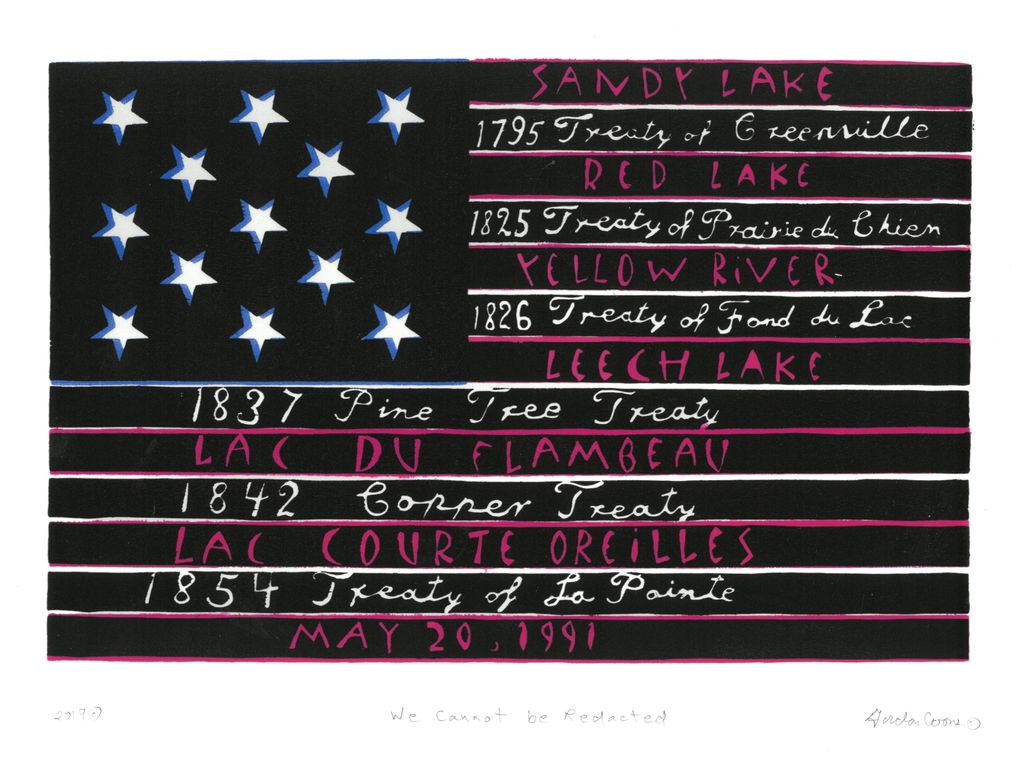 SANDY LAKE
1795 Treaty of Greenville
RED LAKE
1825 Treaty of Prairie du Chien
YELLOW RiVER
1826 Treaty of Fond du Lac
LEECH LAKE
1837 Pine Tree Treaty
LAC DU FLAMBEAU
1842 Copper Treaty
LAC COURTE OREiLLES
1854 Treaty of La Pointe
MAY 20, 1991
2019© We Cannot be Redacted Gordon Coons ©